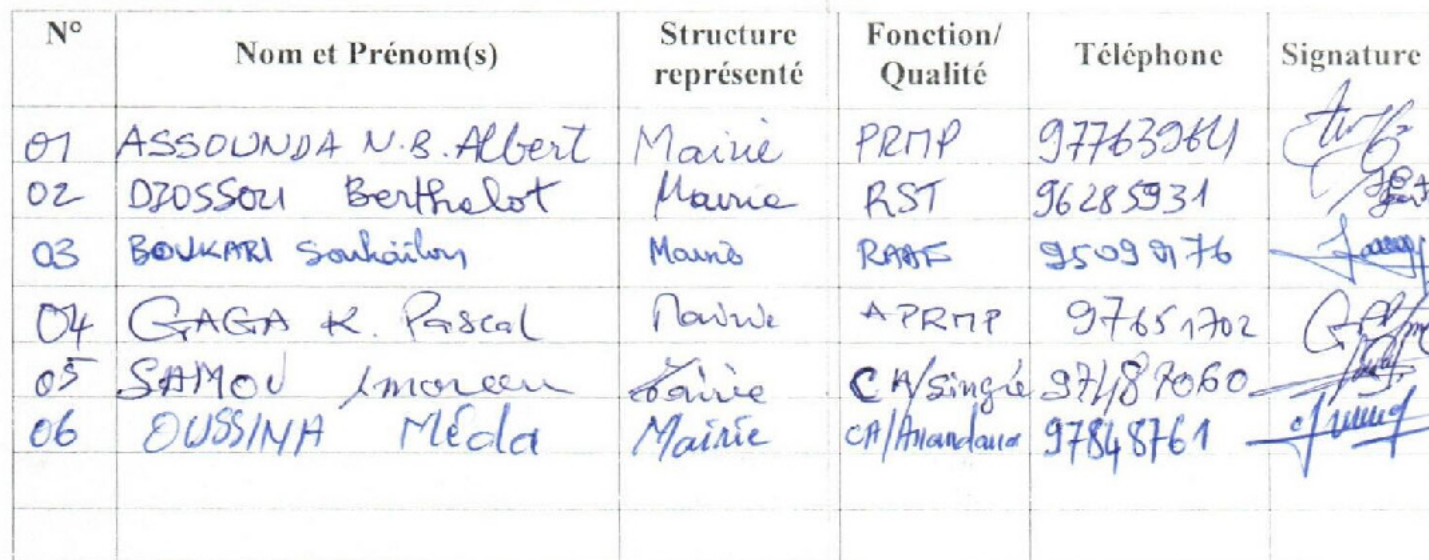 N° Nom et Prénom(s) Structure représenté Fonction/ Qualité Téléphone Signature
01 ASSOUNDA N.B. Albert Mairie PRMP 97763964
02 DJOSSOU Berthelot Mairie RST 96285931
03 BOUKARI Mairie RAAF 95099176
04 GAGA K. Pascal Mairie APRMP 97651702
05 SAMOU Mairie CA/Singré 97487060
06 OUSSINA Méda Mairie 97848761